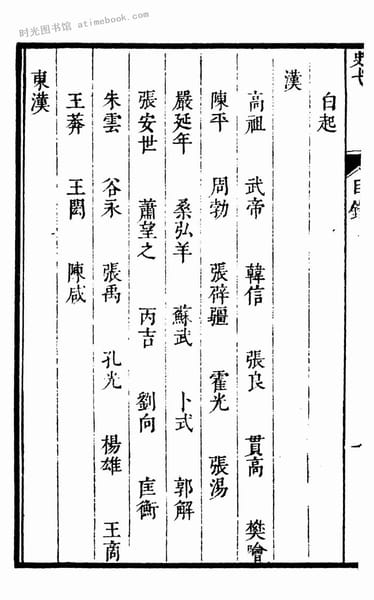 时光图书馆 atimebook.com
目錄
白起
漢
高祖 武帝 韓信 張良 貫高 樊噲
陳平 周勃 張辟疆 霍光 張湯
嚴延年 桑弘羊 蘇武 卜式 郭解
張安世 蕭望之 丙吉 劉向 匡衡
朱雲 谷永 張禹 孔光 楊雄 王商
王莽 王閎 陳咸
東漢